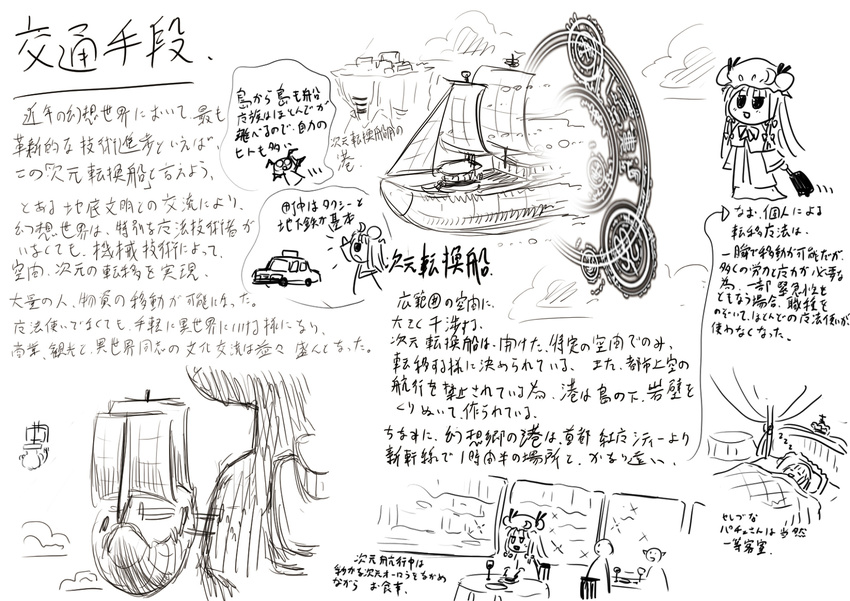 交通手段.
近年の幻想世界において、最も
革新的な技術進歩といえば、
この「次元転換船」と言えよう。
とある地底文明との交流により、
幻想世界は、特別な魔法技術者が
いなくても、機械技術によって、
空間、次元の転移を実現、
大量の人、物資の移動が可能になった。
魔法使いでなくても、手軽に異世界にいける様になり、
商業、観光と、異世界同志の文化交流は益々盛んとなった。
島から島も船
魔族はほとんどが
飛べるので、自力の
ヒトも多い
次元転換船用の
港.
町中はタクシーと
地下鉄が基本
次元転換船.
広範囲の空間に、
大きく干渉する
次元転換船は、開けた、特定の空間でのみ、
転移する様に決められている。また、都市上空の
航行を禁止されている為、港は島の下、岩壁を
くりぬいて、作られている。
ちなみに、幻想郷の港は、首都 紅魔シティーより
新幹線で1時間半の場所と、かなり遠い、
なお、個人による
転移魔法は、
一瞬で移動が可能だが、
多くの労力と魔力が必要な
為、一部緊急性を
ともなう場合、職種を
のぞいて、ほとんどの魔法使いが、
使わなくなった。
zzz
セレブな
パチェさんは当然
一等客室.
次元航行中は
動かる次元オーロラをながめ
ながら お食事.